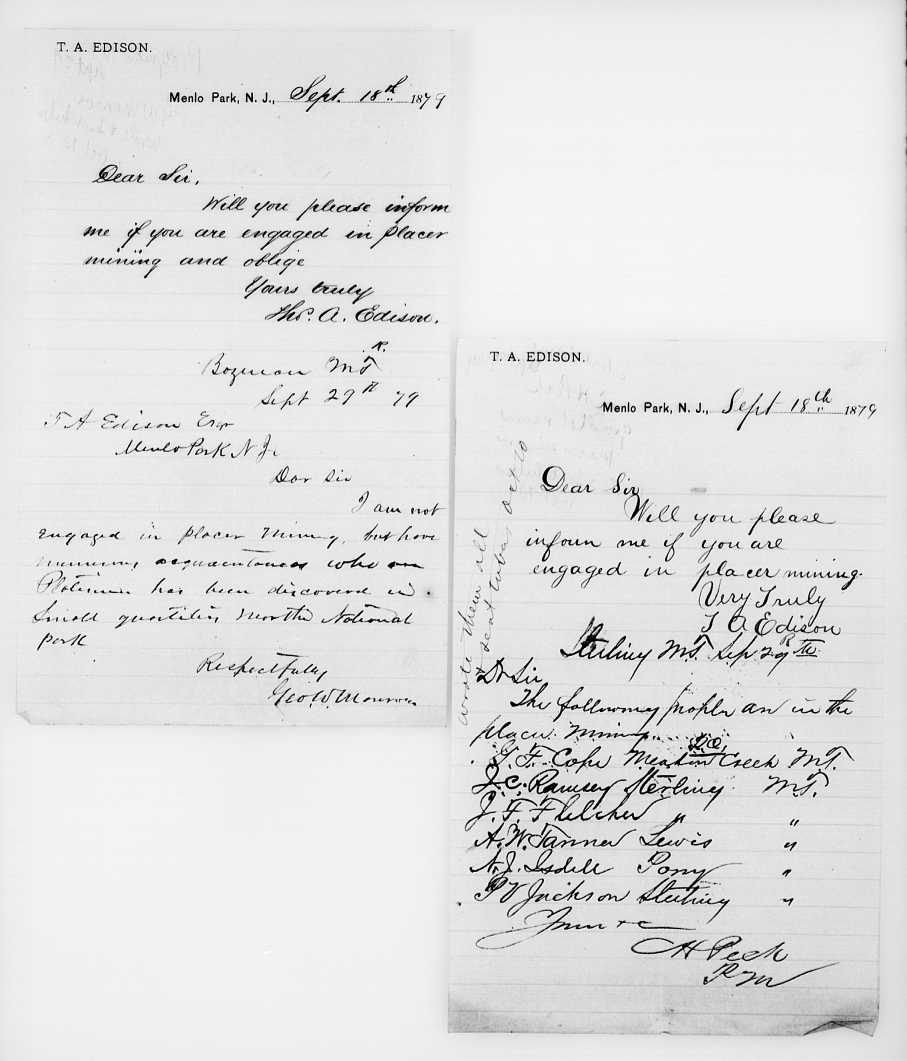 T. A. EDISON.
Menlo Park, N. J., Sept. 18th 1879
Dear Sir,
Will you please inform
me if you are engaged in placer
mining and oblige
Yours truly
Thos. A. Edison.
R.
Bozeman M.T.
Sept 29th 79
T A Edison Esqr
Menlo Park N J.
Dear Sir
I am not
engaged in placer mining, but have
numerous acquaintances who are
Platinum has been discovered in
Small quantities near the National
Park
Respectfully
Geo W. Monroe
T. A. EDISON.
Menlo Park, N. J., Sept 18th 1879
Dear Sir
Will you please
inform me if you are
engaged in placer mining.
Very Truly
T A Edison
R
Sterling M.T. Sep 29th
Dr Sir
The following people are in the
placer mining
G. F. Cope Meadow Creek M.T.
J. C. Ramsey Sterling M.T.
J. F. Fletcher " "
A. W. Tanner Lewis "
N. J. Isdell Pony "
P V Jackson Sterling "
Yours &c
H Peck
P.M
wrote them all
& sent tubes Oct 10